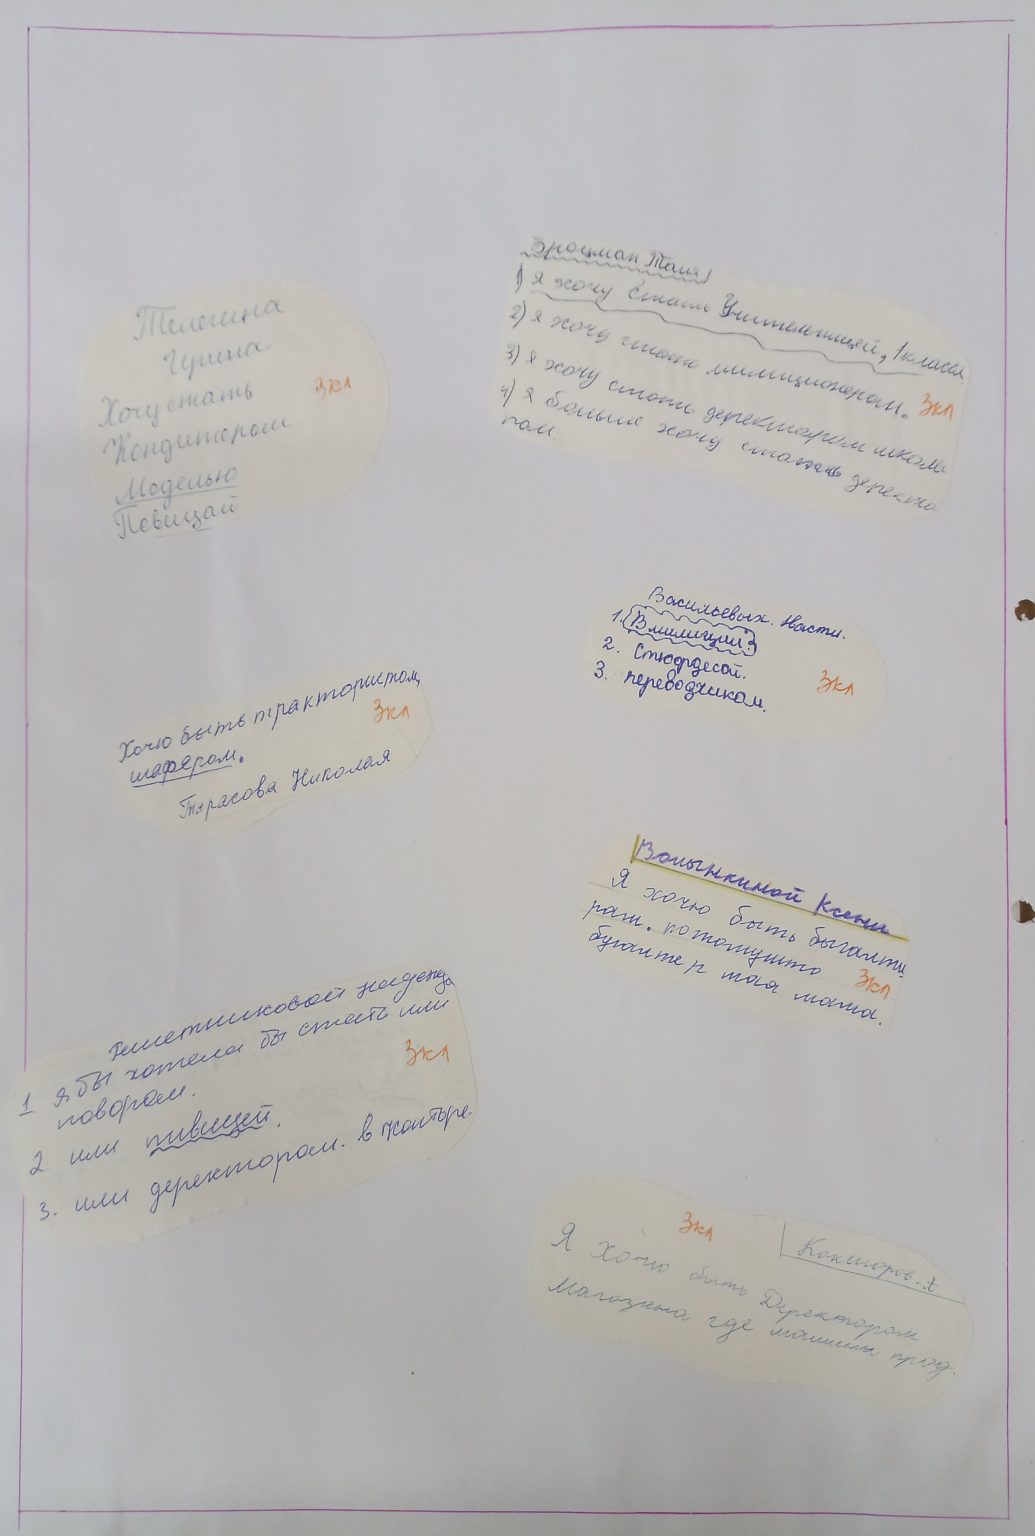 Телегина
Ирина
Хочу стать
Кондитером
Моделью
Певицай
3кл
Таня
1) Я хочу стать Учительницей, 1 класса
2) я хочу стать милиционером.
3) я хочу стать деректаром школы
4) я больше хочу стать деректо
ром.
3кл
Васильевых. Насти.
1. В милиции.
2. Стюрдесой.
3. переводчиком.
3кл
Хочю быть трактористом,
шафёром.
3кл
Тарасова Николая
Волынкиной Ксени
Я хочю быть быгалти
рам. потомушто
бугалтер мая мама.
3кл
надежда
1 я бы хотела бы стать или
поваром.
2 или пивицей.
3. или деректором. в конторе.
3кл
3кл
Я Хочю быть Директором
Магазина где машины прод.